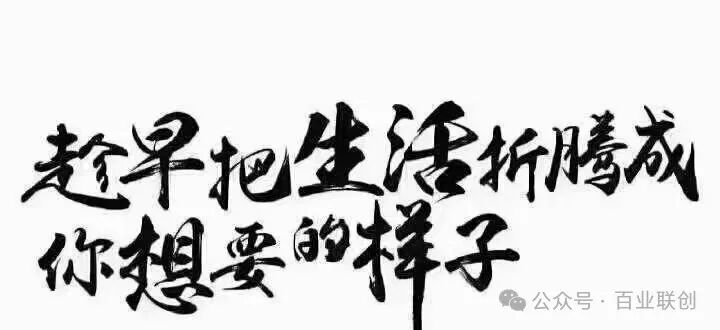 趁早把生活折腾成
你想要的样子
公众号·百业联创